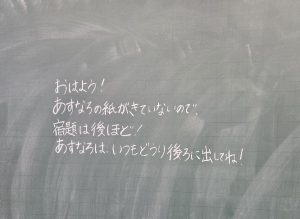 おはよう!
あすなろの紙がきていないので、
宿題は後ほど!
あすなろは、いつもどうり後ろに出してね!